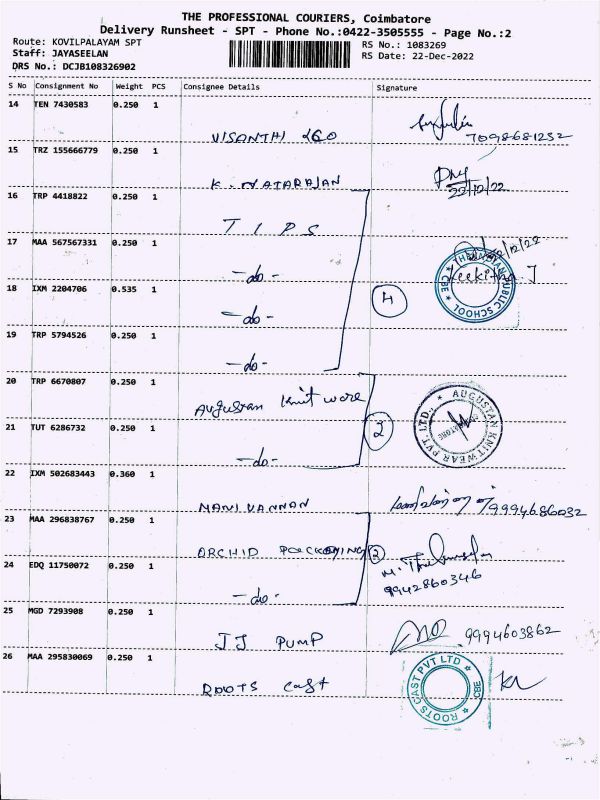 THE PROFESSIONAL COURIERS, Coimbatore
Delivery Runsheet - SPT - Phone No.:0422-3505555 - Page No.:2
Route: KOVILPALAYAM SPT
RS No.: 1083269
Staff: JAYASEELAN
RS Date: 22-Dec-2022
DRS No.: DCJB108326902
S No Consignment No Weight PCS Consignee Details Signature
14 TEN 7430583 0.250 1
VISANTHI 260 7098681252
15 TRZ 155666779 0.250 1
K. NATARAJAN 22/12/22
16 TRP 4418822 0.250 1
T I P S
17 MAA 567567331 0.250 1
/12/22
-do-
THE INDIAN PUBLIC SCHOOL ★ CBE ★
Keekitha. J
18 IXM 2204706 0.535 1
4
-do-
19 TRP 5794526 0.250 1
-do-
20 TRP 6670807 0.250 1
Augustan Knit wore
AUGUSTAN KNITWEAR PVT. LTD.,
21 TUT 6286732 0.250 1
2
-do-
22 IXM 502683443 0.360 1
MANIVANNAN 9994686032
23 MAA 296838767 0.250 1
ORCHID PACKAGING 2
24 EDQ 11750072 0.250 1
9942860346
-do-
25 MGD 7293908 0.250 1
JJ PUMP 9994603862
26 MAA 295830069 0.250 1
ROOTS cast
ROOTS CAST PVT LTD ★ CBE ★